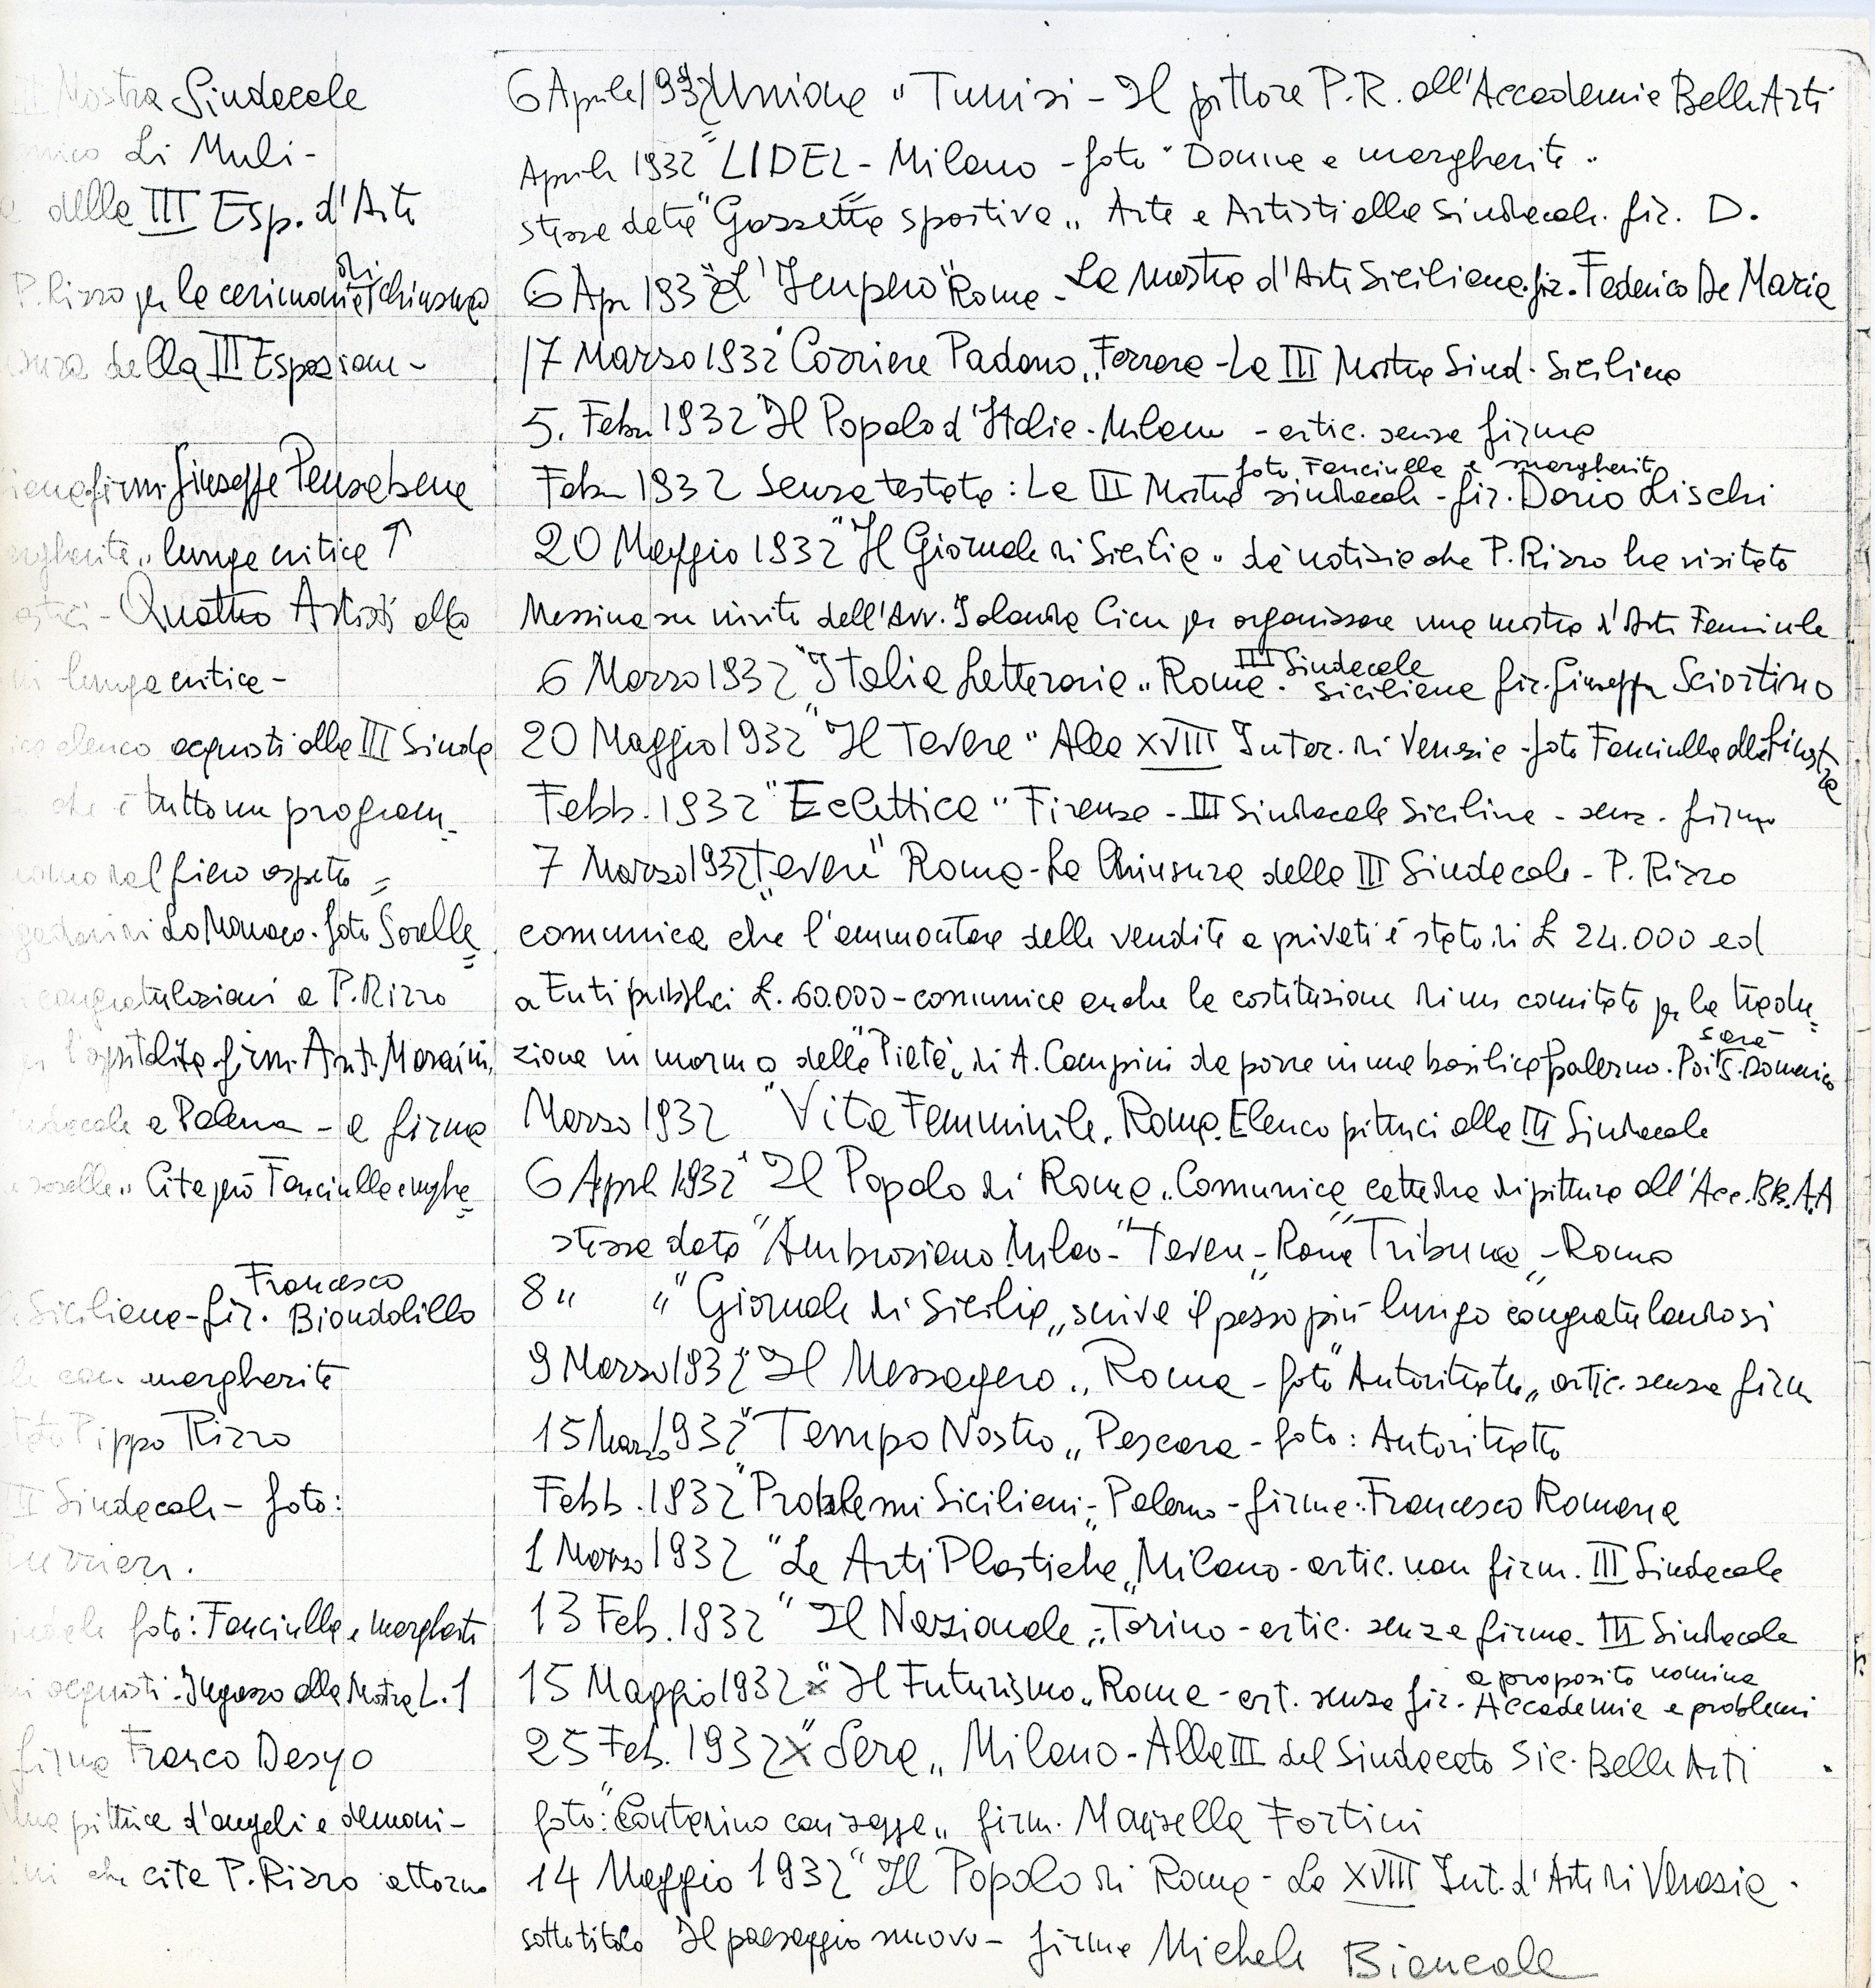 Mostra Sindacale
Li Muli-
della III Esp. d'Arte
P. Rizzo per la cerimonia di chiusura
della III Esposizion-
firm. Giuseppe Pensabene
lunga critica ↑
Quattro Artisti alla
lunga critica-
elenco acquisti alla III Sinda
che è tutto un program-
nel fiero aspetto =
Lo Monaco. foto Sorelle
congratulazioni a P. Rizzo
l'ospitalità firm. Ant. Moraini
e Palerm - a firma
Cita però Fanciulla e marghe
Siciliana - fir. Francesco Biondolillo
con margherite
Pippo Rizzo
III Sindacale - foto:
foto: Fanciulla e margherite
acquisti. Ingresso alla Mostra L. 1
firma Franco Desyo
pittrice d'angeli e demoni-
che cita P. Rizzo attorno
6 Aprile 1932 "Unione" Tunisi - Il pittore P.R. all'Accademia Belle Arti
Aprile 1932 "LIDEL - Milano - foto "Donna e margherite"
stessa data "Gazzetta sportiva" Arte e Artisti alla Sindacale. fir. D.
6 Apr 1932 "L'Impero" Roma - La mostra d'Arte Siciliana. fir. Federico De Maria
17 Marzo 1932 "Corriere Padano" Ferrara - La III Mostra Sind. Siciliana
5. Febr 1932 "Il Popolo d'Italia - Milano - artic. senza firma
Febr 1932 Senza testata: La III Mostra sindacale - foto Fanciulla e margherite fir. Dario Lischi
20 Maggio 1932 "Il Giornale di Sicilia" dà notizia che P. Rizzo ha visitato
Messina su invito dell'Avv. Jolanda Cicu per organizzare una mostra d'Arte Feminile
6 Marzo 1932 "Italia Letteraria" Roma. III Sindacale siciliana fir. Giuseppe Sciortino
20 Maggio 1932 "Il Tevere" Alla XVIII Inter. di Venezia - foto Fanciulla alla finestra
Febb. 1932 "Eclettica" Firenze - III Sindacale Siciliana - senz. firma
7 Marzo 1932 "Tevere" Roma - La Chiusura della III Sindacale - P. Rizzo
comunica che l'ammontare delle vendite a privati è stato di £ 24.000 ed
a Enti pubblici £. 60.000 - comunica anche la costituzione di un comitato per la tradu=
zione in marmo della "Pietà" di A. Campini da porre in una basilica palermo. Poi sarà S. Domenico
Marzo 1932 "Vita Femminile" Roma. Elenco pittrici alla III Sindacale
6 Aprile 1932 "Il Popolo di Roma" Comunica cattedra di pittura all'Acc. BB.AA
stessa data "Ambrosiano Milano - "Tevere" - Roma "Tribuna" - Roma
8 " " "Giornale di Sicilia" scrive il pezzo più lungo congratulandosi
9 Marzo 1932 "Il Messagero" Roma - foto "Autoritratto" artic. senza firm
15 Marzo 1932 "Tempo Nostro" Pescara - foto: Autoritratto
Febb. 1932 "Problemi Siciliani" - Palermo - firma: Francesco Romano
1 Marzo 1932 "Le Arti Plastiche" Milano - artic. non firm. III Sindacale
13 Feb. 1932 " Il Nazionale" - Torino - artic. senza firma. III Sindacale
15 Maggio 1932 x "Il Futurismo" Roma - art. senza fir. a proposito nomina Accademia e problemi
25 Feb. 1932 X "Sera" Milano - Alla III del Sindacato Sic. Belle Arti
foto: "Contadino con zappa" firm. Marisella Fortini
14 Maggio 1932 "Il Popolo di Roma - La XVIII Int. d'Arte di Venezia.
sottotitolo Il paesaggio nuovo - firma Michele Biancale